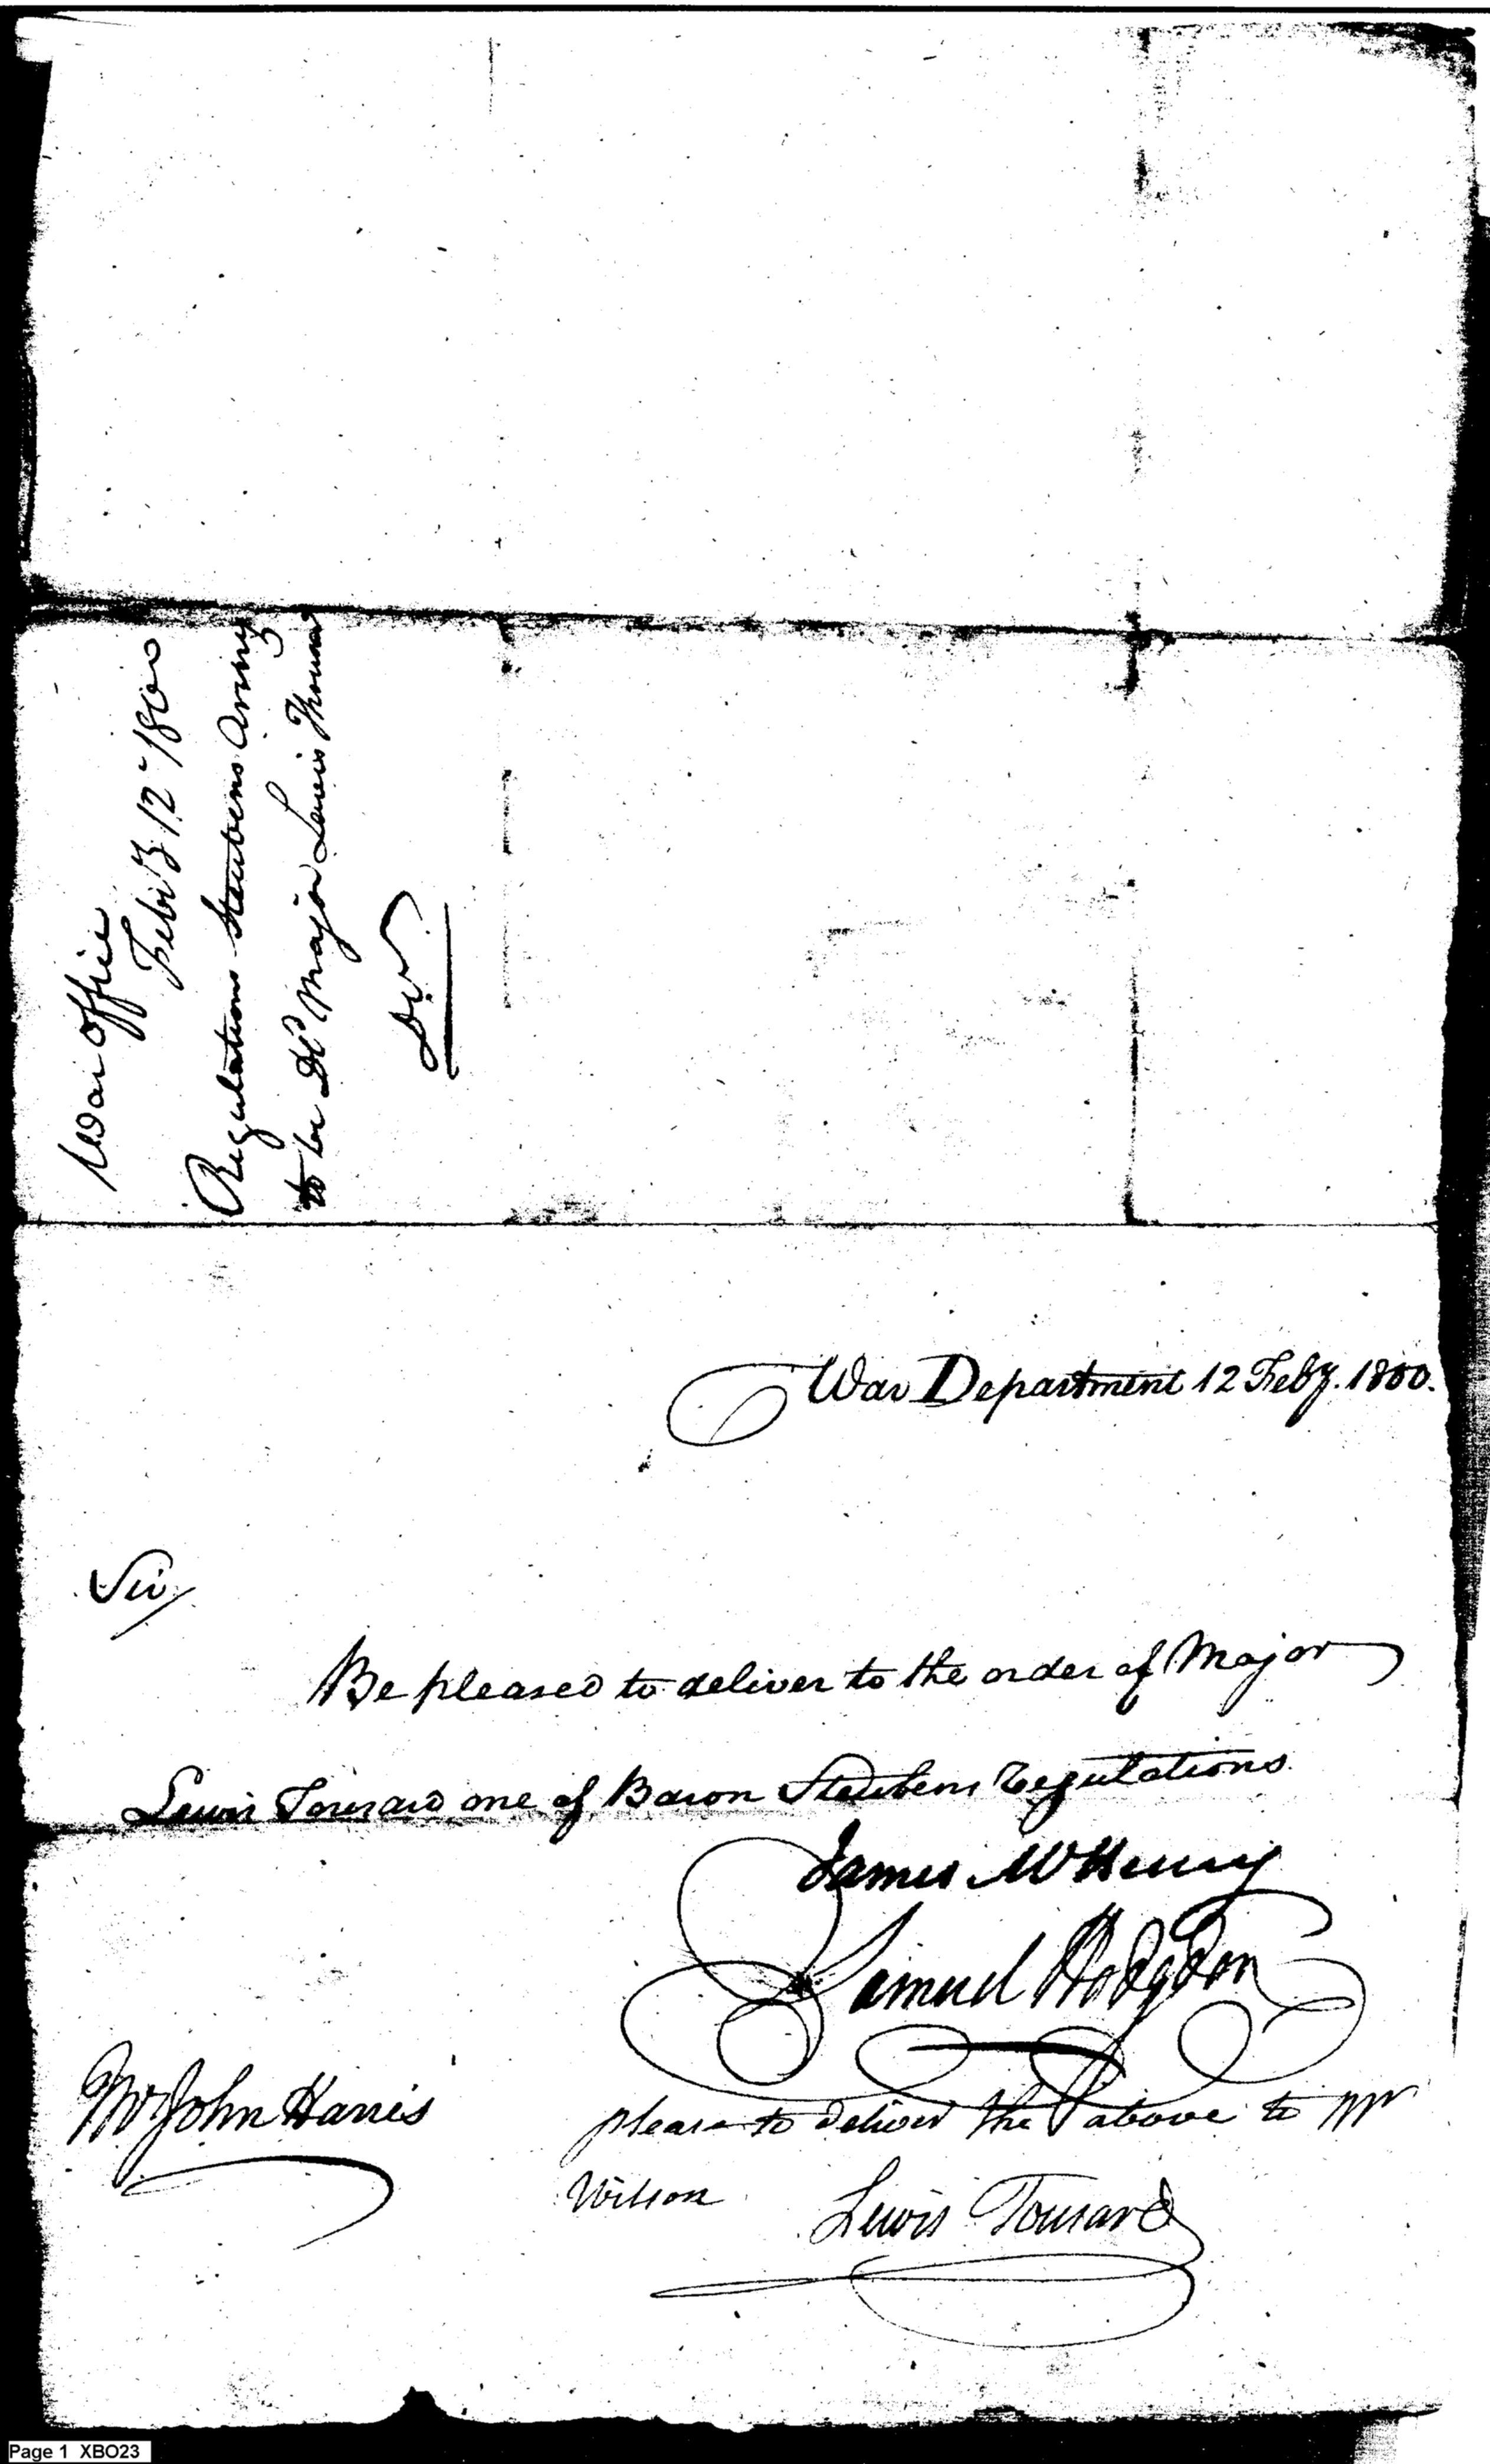 War Office
Feby 12 1800
Regulations Steubens Army
to be Dd Major Lewis Thousard
War Department 12 Feby. 1800.
Sir,
Be pleased to deliver to the order of Major
Lewis Tousard one of Baron Steubens regulations.
James McHenry
Samuel Hodgdon
Mr John Harris
please to deliver the above to Mr
Wilson
Lewis Tousard
Page 1 XBO23